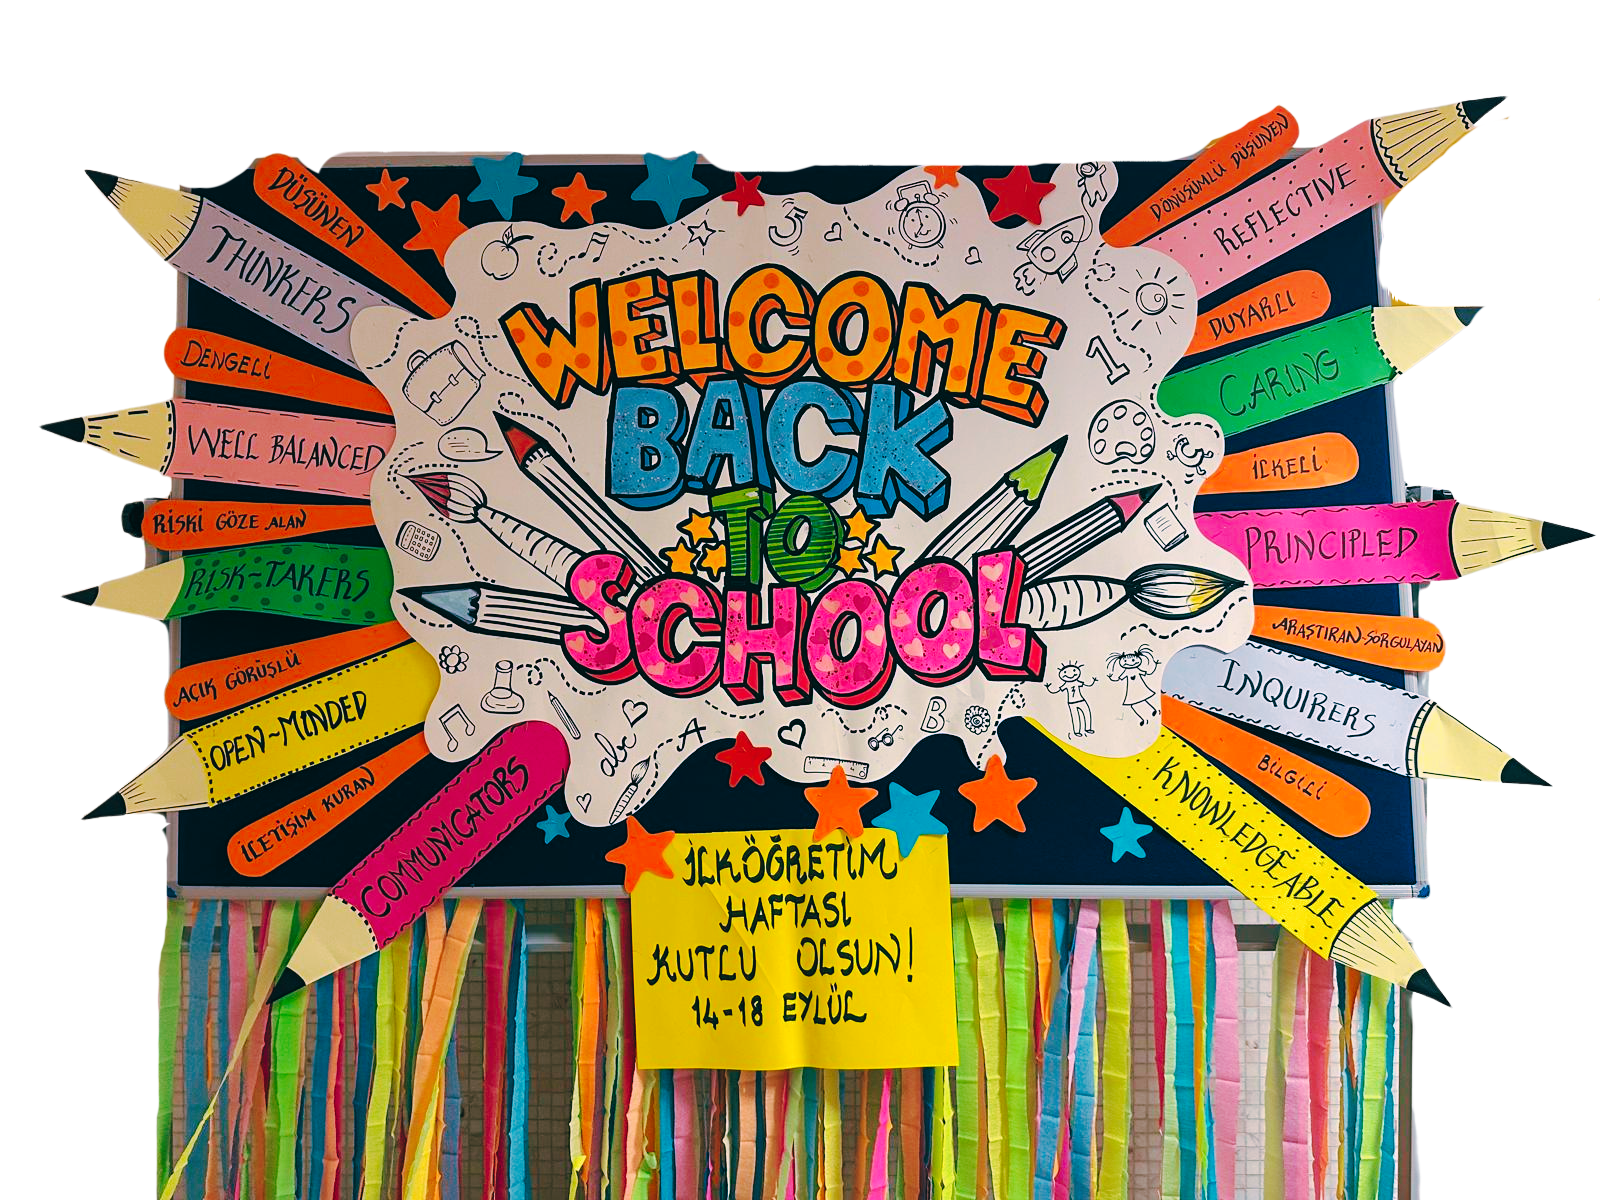 WELCOME
BACK
TO
SCHOOL
DÜŞÜNEN
THINKERS
DENGELİ
WELL BALANCED
RİSKİ GÖZE ALAN
RISK-TAKERS
AÇIK GÖRÜŞLÜ
OPEN-MINDED
İLETİŞİM KURAN
COMMUNICATORS
DÖNÜŞÜMLÜ DÜŞÜNEN
REFLECTIVE
DUYARLI
CARING
İLKELİ
PRINCIPLED
ARAŞTIRAN-SORGULAYAN
INQUIRERS
BİLGİLİ
KNOWLEDGEABLE
5
1
abc
A
B
İLKÖĞRETİM
HAFTASI
KUTLU OLSUN!
14-18 EYLÜL